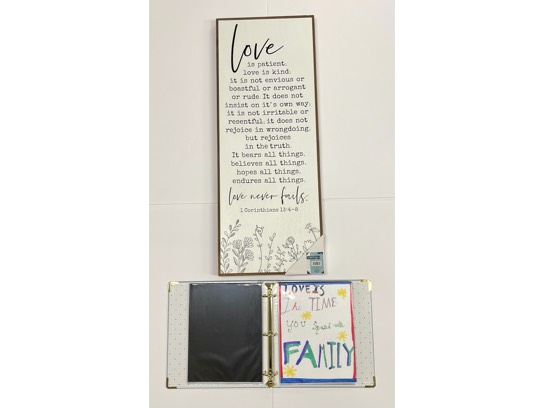 Love
is patient,
love is kind;
it is not envious or
boastful or arrogant
or rude. It does not
insist on it's own way;
it is not irritable or
resentful; it does not
rejoice in wrongdoing,
but rejoices
in the truth.
It bears all things,
believes all things,
hopes all things,
endures all things.
love never fails.
1 Corinthians 13:4-8
LOVE IS
The TIME
YOU Spend with
FAMILY